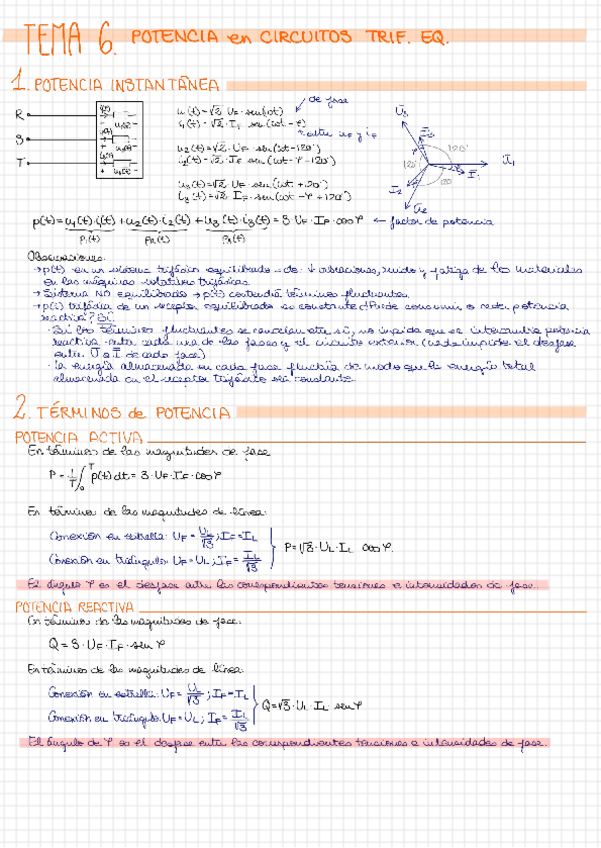 TEMA 6. POTENCIA en CIRCUITOS TRIF. EQ.
1. POTENCIA INSTANTÁNEA
R
S
T
u₁(t)=√2·U_F·sen(ωt)
de fase
i₁(t)=√2·I_F·sen(ωt-φ)
entre u_F y i_F
u₂(t)=√2·U_F·sen(ωt-120°)
i₂(t)=√2·I_F·sen(ωt-φ-120°)
u₃(t)=√2·U_F·sen(ωt+120°)
i₃(t)=√2·I_F·sen(ωt-φ+120°)
U₃
120°
120°
U₁
I₁
I₂
U₂
p(t)=u₁(t)·i₁(t)+u₂(t)·i₂(t)+u₃(t)·i₃(t)=3·U_F·I_F·cosφ ← factor de potencia
p₁(t) p₂(t) p₃(t)
Observaciones:
→p(t) en un sistema trifásico equilibrado = cte: ↓ vibraciones, ruido y fatiga de los materiales
en las máquinas rotativas trifásicas.
→Sistema NO equilibrado → p(t) contendrá términos fluctuantes.
→p(t) trifásica de un receptor equilibrado es constante ¿Puede consumir o ceder potencia
reactiva? SÍ
· Si los términos fluctuantes se cancelan entre sí, no impide que se intercambie potencia
reactiva entre cada una de las fases y el circuito exterior (nada impide el desfase
entre U e I de cada fase)
· La energía almacenada en cada fase fluctúa de modo que la energía total
almacenada en el receptor trifásico sea constante.
2. TÉRMINOS de POTENCIA
POTENCIA ACTIVA
En términos de las magnitudes de fase
P = 1/T ∫₀ᵀ p(t)dt = 3·U_F·I_F·cosφ
En términos de las magnitudes de línea:
Conexión en estrella: U_F = U_L/√3; I_F=I_L
P=√3·U_L·I_L·cosφ.
Conexión en triángulo: U_F=U_L; I_F=I_L/√3
El ángulo φ es el desfase entre las correspondientes tensiones e intensidades de fase.
POTENCIA REACTIVA
En términos de las magnitudes de fase:
Q = 3·U_F·I_F·senφ
En términos de las magnitudes de línea:
Conexión en estrella: U_F=U_L/√3; I_F=I_L
Q=√3·U_L·I_L·senφ
Conexión en triángulo: U_F=U_L; I_F=I_L/√3
El ángulo de φ es el desfase entre las correspondientes tensiones e intensidades de fase.